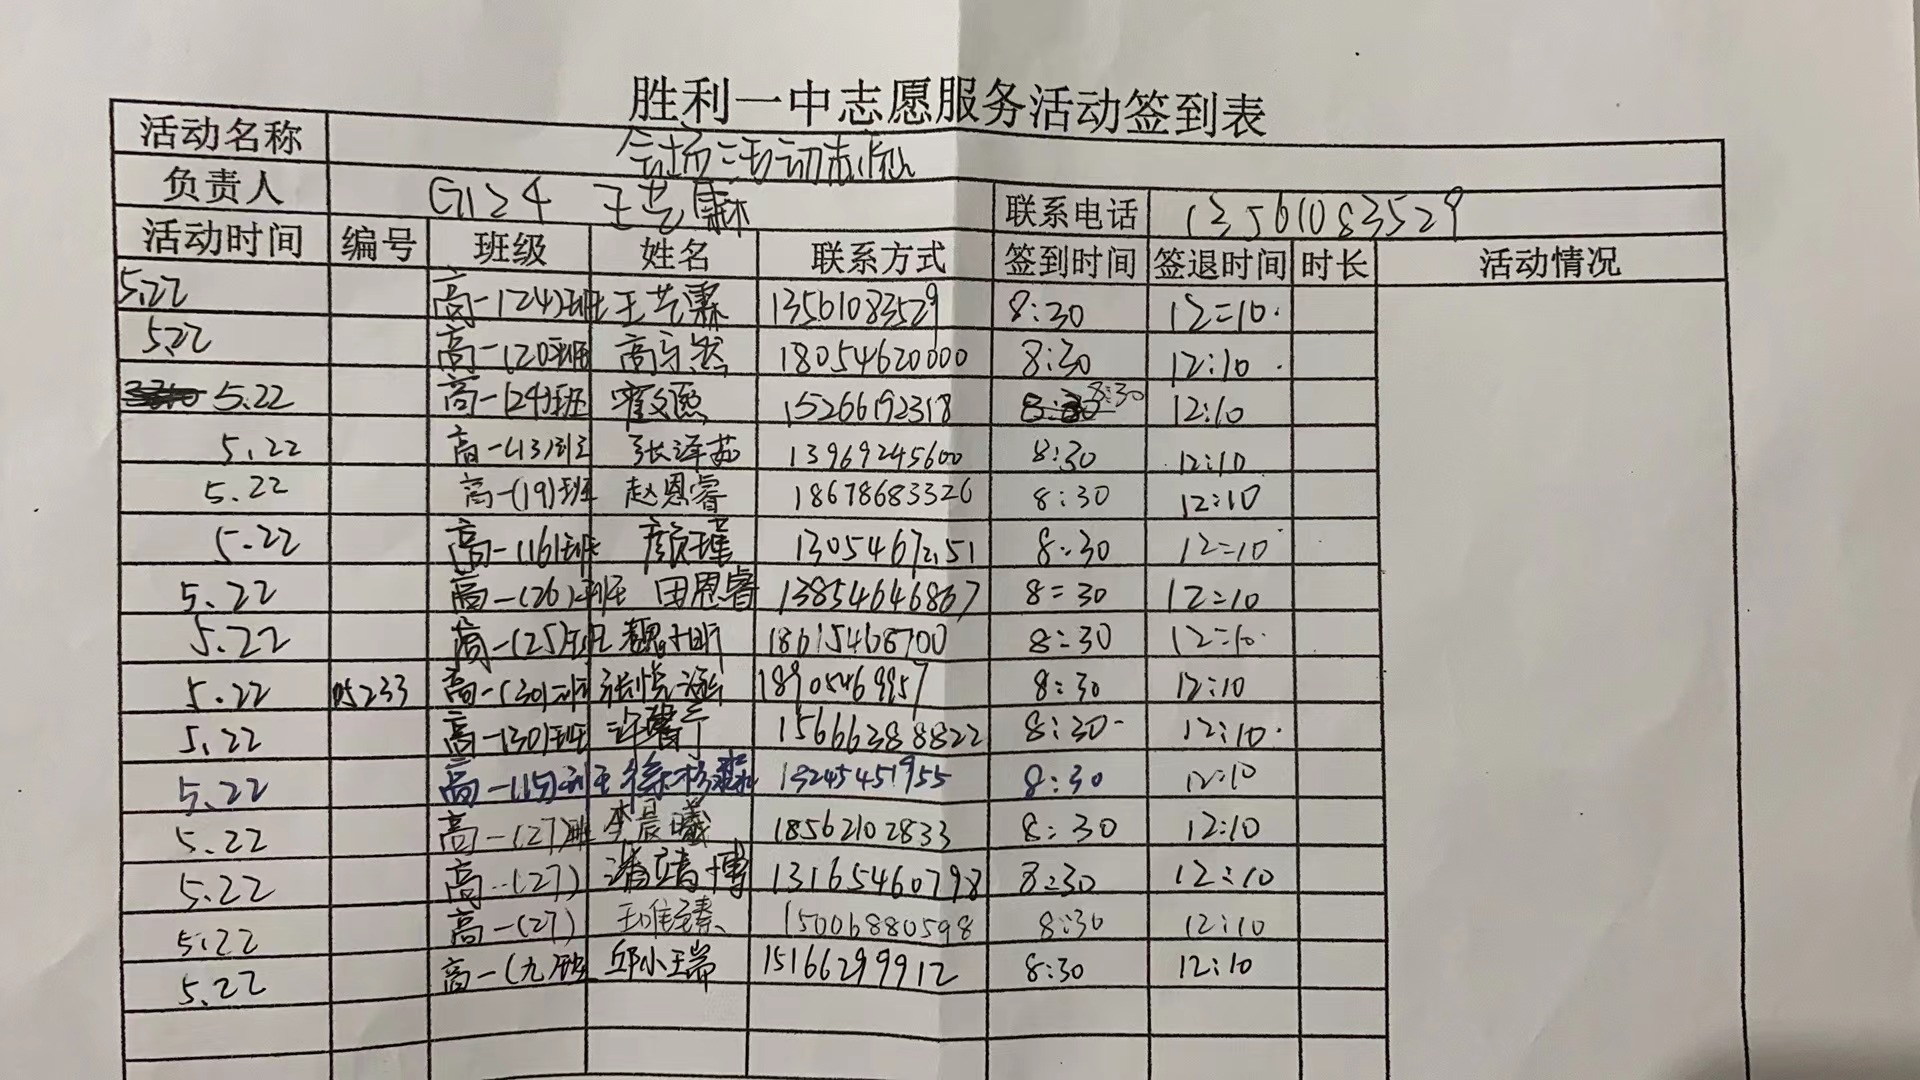 胜利一中志愿服务活动签到表
活动名称 会场活动志愿
负责人 G124 王艺霖 联系电话 13561083529
活动时间 编号 班级 姓名 联系方式 签到时间 签退时间 时长 活动情况
5.22 高一(24)班 王艺霖 13561083529 8:30 12:10
5.22 高一(20)班 高 然 18054620000 8:30 12:10
5.22 高一(24)班 霍文 15266192318 8:30 12:10
5.22 高一(13)班 张泽茹 13969245600 8:30 12:10
5.22 高一(19)班 赵恩睿 18678683326 8:30 12:10
5.22 高一(16)班 颜瑾 8:30 12:10
5.22 高一(26)班 田恩睿 13854646867 8:30 12:10
5.22 高一(25)班 魏 昕 18615468700 8:30 12:10
5.22 05233 高一(30)班 张悦涵 18905469957 8:30 12:10
5.22 高一(30)班 许馨宁 15666388822 8:30 12:10
5.22 高一(15)班 徐 13245451955 8:30 12:10
5.22 高一(27)班 李晨曦 18562102833 8:30 12:10
5.22 高一(27) 潘靖博 13165460798 8:30 12:10
5.22 高一(27) 15006880598 8:30 12:10
5.22 高一(九)班 邱小瑞 15166299912 8:30 12:10